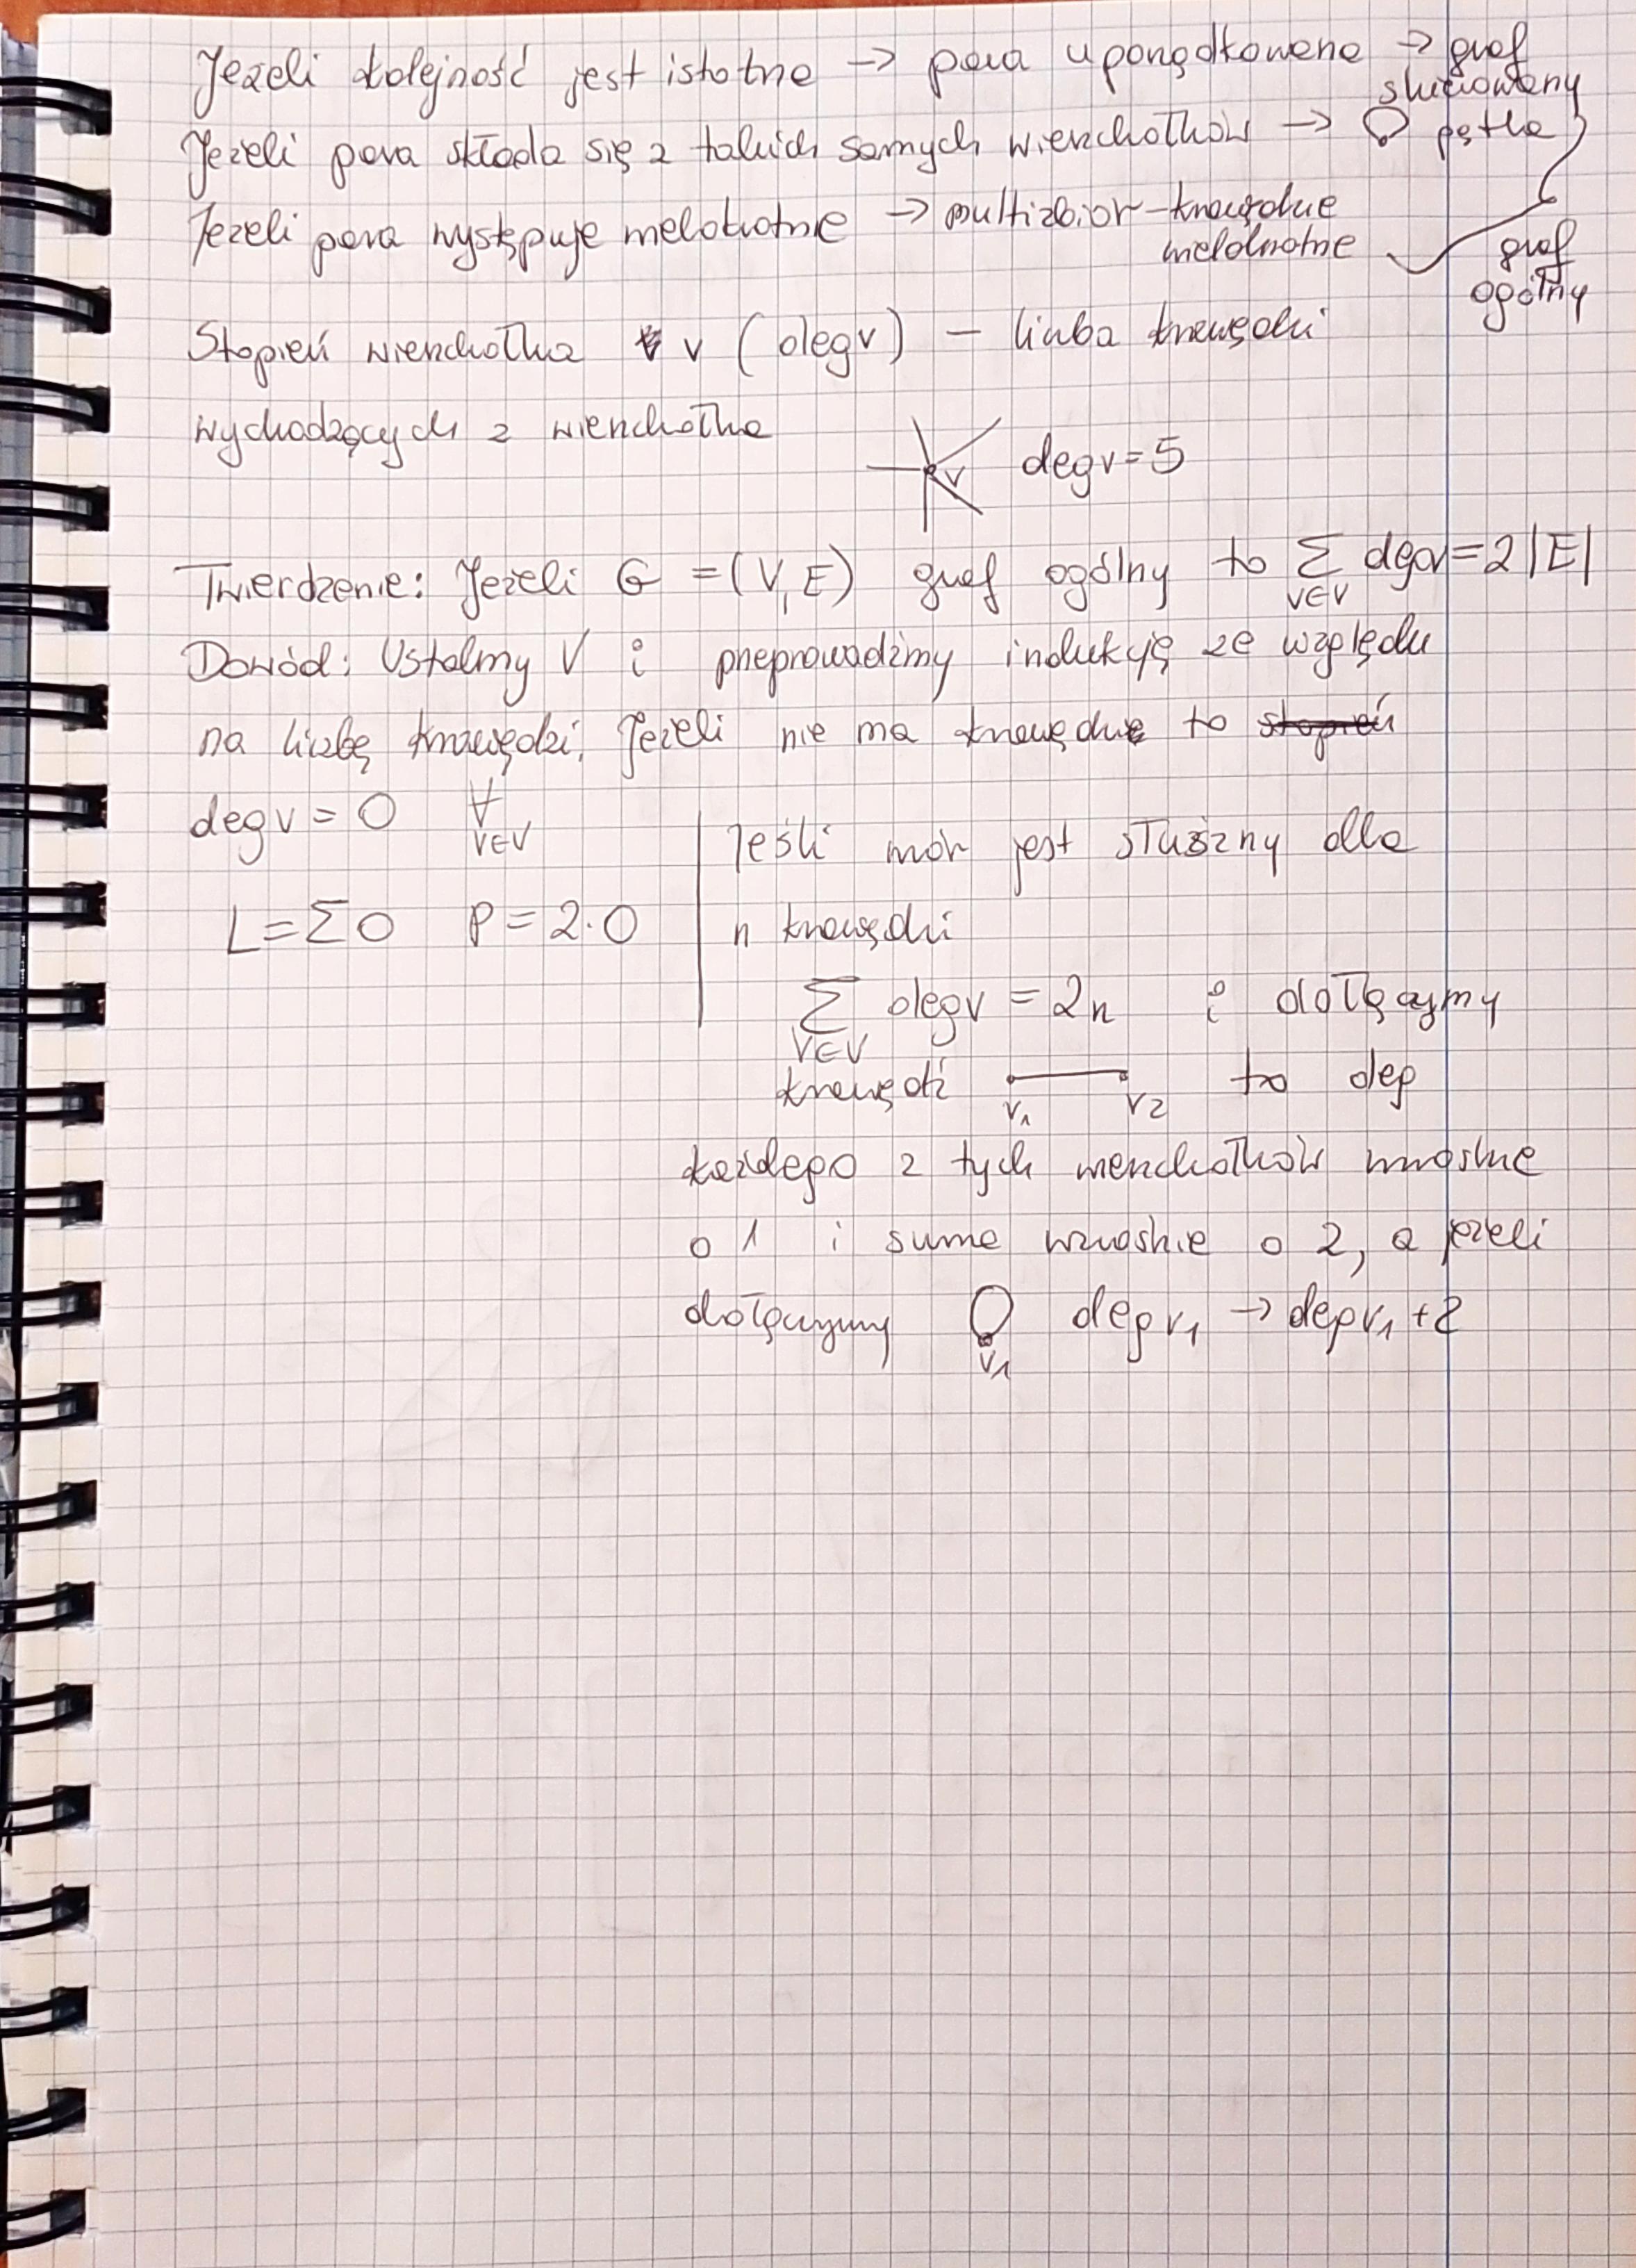 Jeżeli kolejność jest istotna → para uporządkowana → graf skierowany
Jeżeli para składa się z takich samych wierzchołków → pętla
Jeżeli para występuje wielokrotnie → multizbior - krawędzie
wielokrotne
graf
ogólny
Stopień wierzchołka v (deg v) - liczba krawędzi
wychodzących z wierzchołka
v deg v = 5
Twierdzenie: Jeżeli G = (V, E) graf ogólny to ∑ deg v = 2|E|
v∈V
Dowód: Ustalmy V i przeprowadźmy indukcję ze względu
na liczbę krawędzi. Jeżeli nie ma krawędzi to ~~stopień~~
deg v = 0 ∀
v∈V
L = ∑0 P = 2·0
Jeśli wzór jest słuszny dla
n krawędzi
∑ deg v = 2n i dołączymy
v∈V
krawędź v₁ v₂ to deg
każdego z tych wierzchołków wzrośnie
o 1 i suma wzrośnie o 2, a jeżeli
dołączymy v₁ deg v₁ → deg v₁ + 2